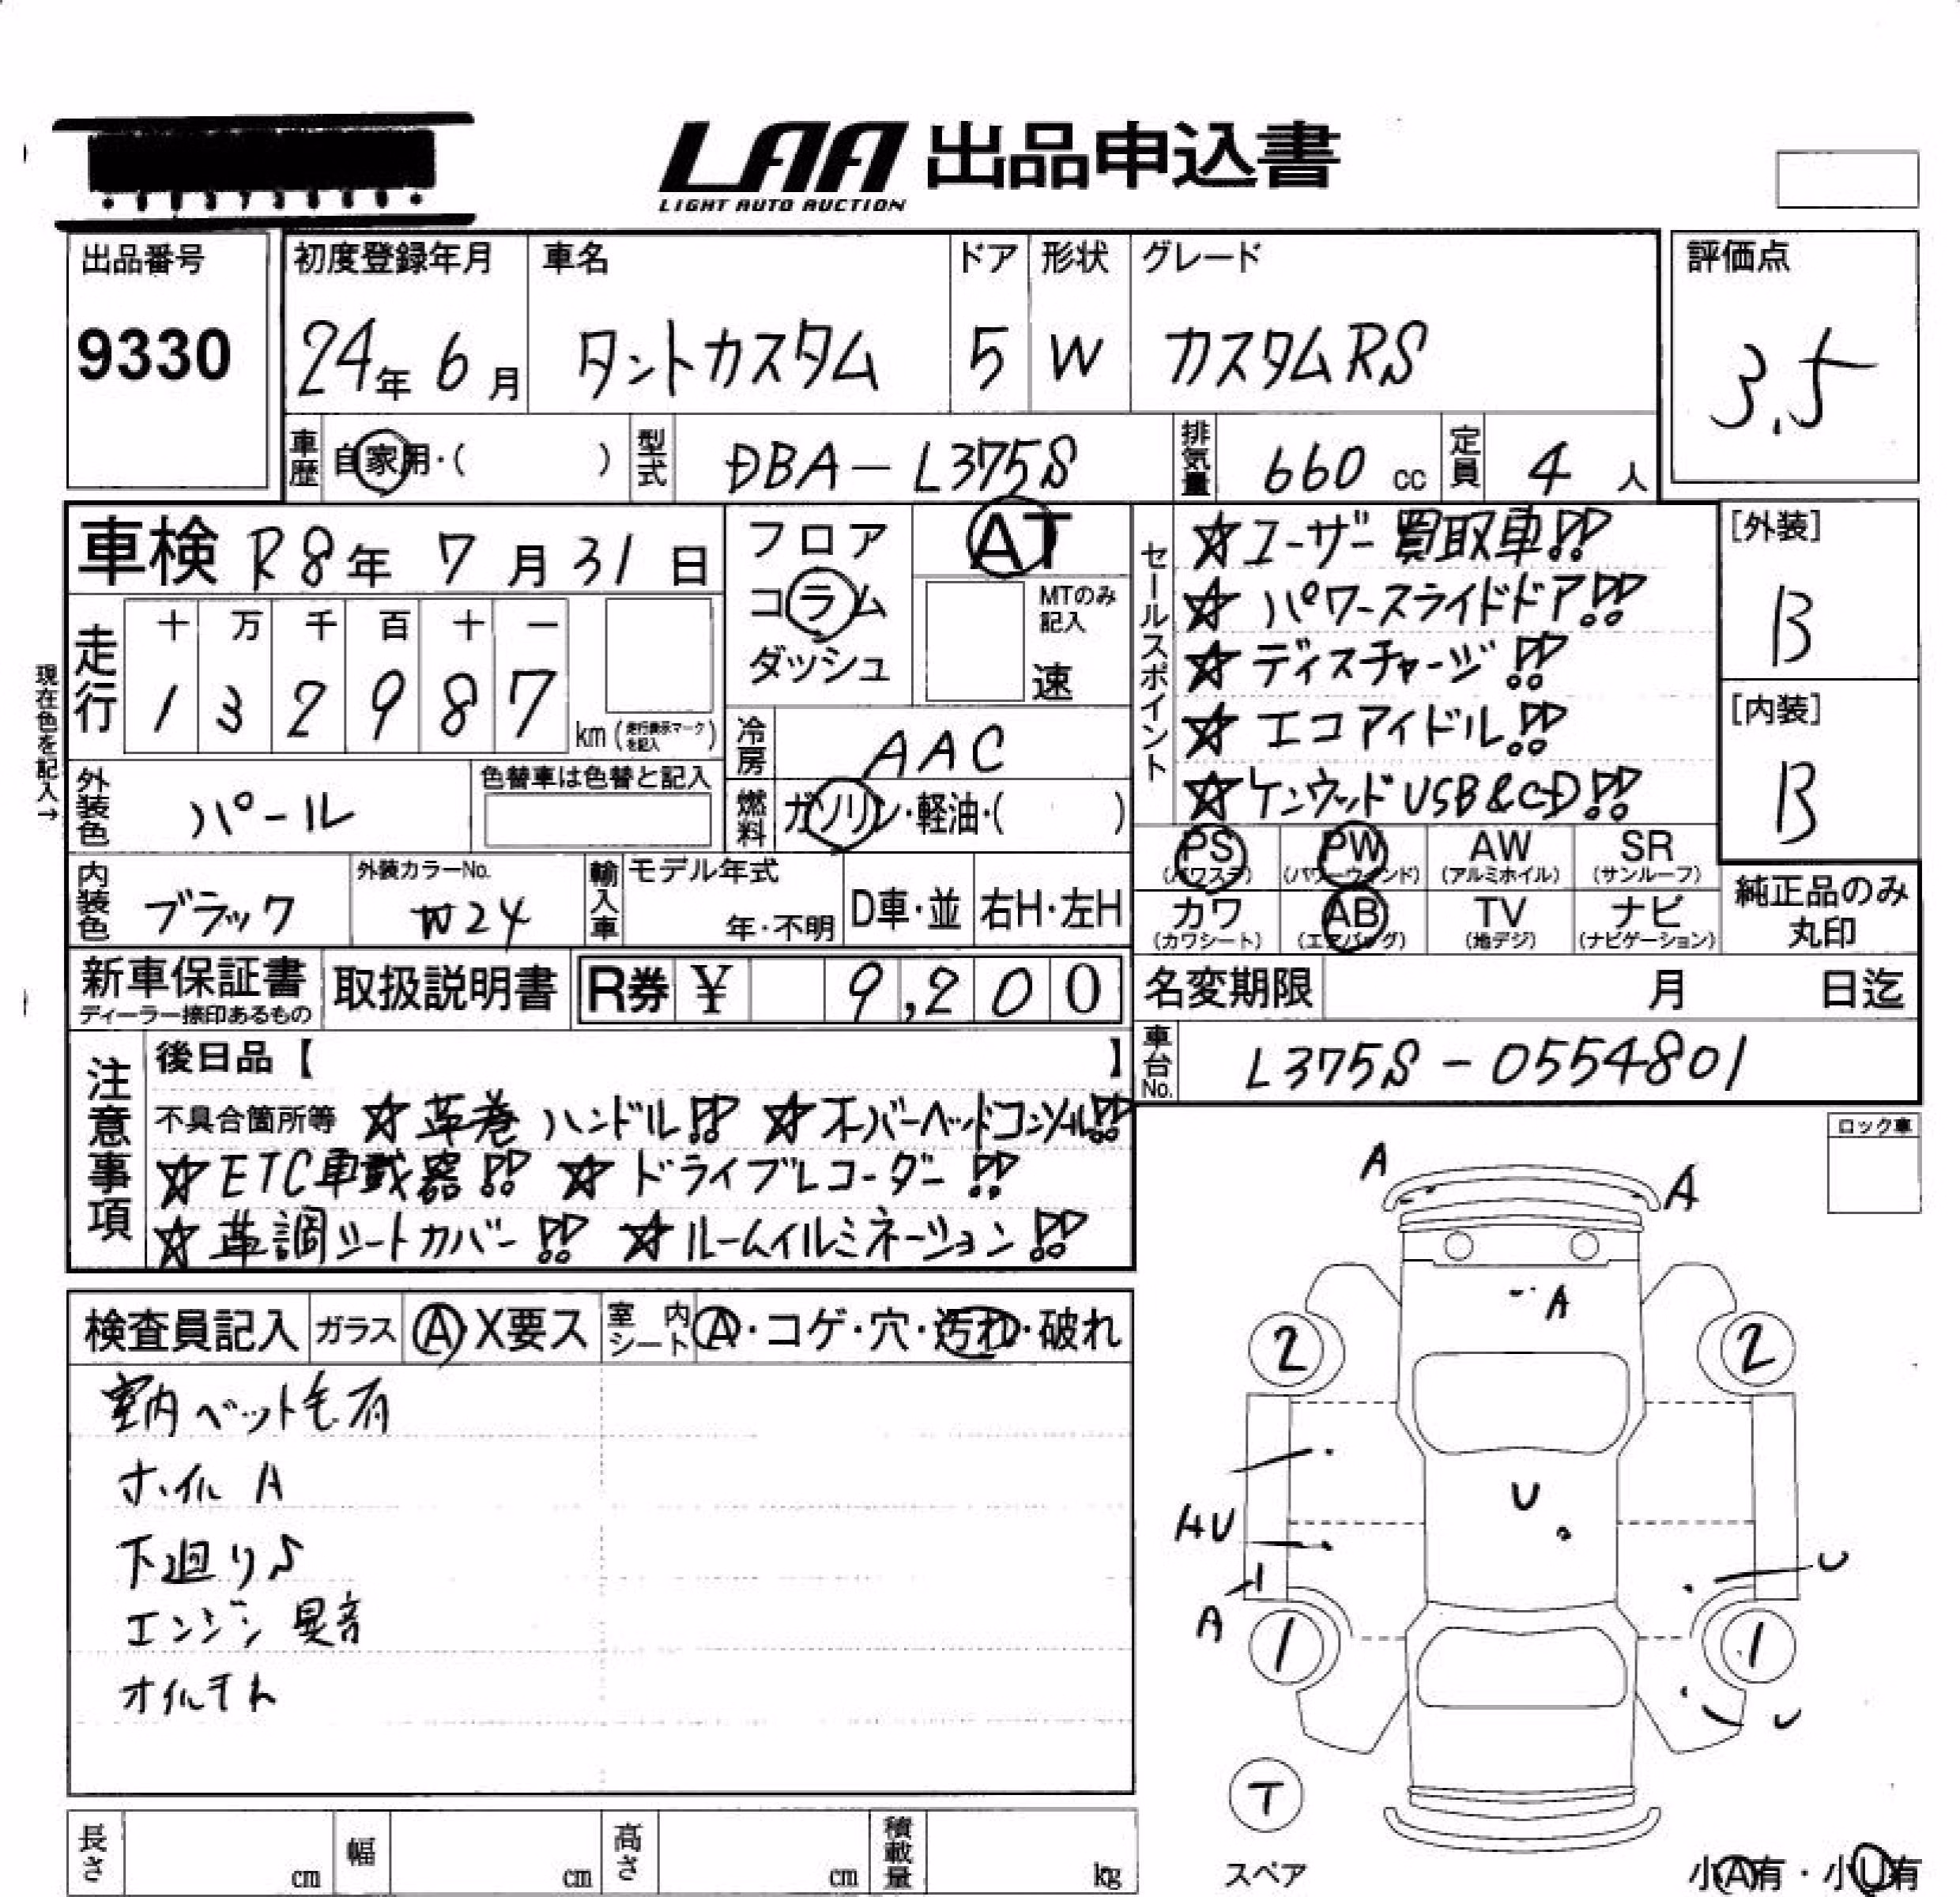 LAA 出品申込書
LIGHT AUTO AUCTION
出品番号 初度登録年月 車名 ドア 形状 グレード 評価点
9330 24年 6月 タントカスタム 5 W カスタムRS 3.5
車歴 自家用・( ) 型式 DBA-L375S 排気量 660 cc 定員 4 人
車検 R8年 7月 31日
フロア
コラム
ダッシュ
AT
MTのみ記入
速
現在色を記入→
走行 十 万 千 百 十 一
1 3 2 9 8 7 km (走行表示マークを記入)
冷房 AAC
外装色 パール 色替車は色替と記入
燃料 ガソリン・軽油・( )
セールスポイント
☆ユーザー買取車!!
☆パワースライドドア!!
☆ディスチャージ!!
☆エコアイドル!!
☆ケンウッドUSB&CD!!
[外装]
B
[内装]
B
内装色 ブラック 外装カラーNo. W24 輸入車 モデル年式 年・不明 D車・並 右H・左H
PS (パワステ) PW (パワーウィンド) AW (アルミホイル) SR (サンルーフ)
カワ (カワシート) AB (エアバッグ) TV (地デジ) ナビ (ナビゲーション)
純正品のみ
丸印
新車保証書 取扱説明書 R券 ¥ 9,200
ディーラー捺印あるもの
名変期限 月 日迄
車台No. L375S-0554801
注意事項
後日品【 】
不具合箇所等 ☆革巻ハンドル!! ☆オーバーヘッドコンソール!!
☆ETC車載器!! ☆ドライブレコーダー!!
☆革調シートカバー!! ☆ルームイルミネーション!!
検査員記入 ガラス A X要ス 室内シート A・コゲ・穴・汚れ・破れ
室内ペット毛有
ホイル A
下廻りS
エンジン異音
オイルモレ
ロック車
A
A
A
2 2
U
AU
U
A
1 1
U
T
スペア
小A有・小U有
長さ cm 幅 cm 高さ cm 積載量 kg